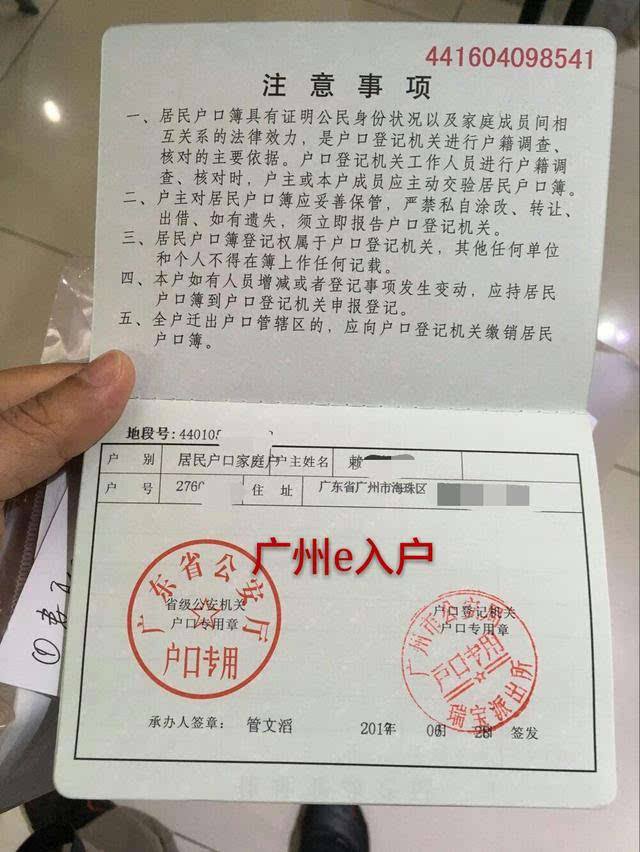 441604098541
注意事项
一、居民户口簿具有证明公民身份状况以及家庭成员间相
互关系的法律效力，是户口登记机关进行户籍调查、
核对的主要依据。户口登记机关工作人员进行户籍调
查、核对时，户主或本户成员应主动交验居民户口簿。
二、户主对居民户口簿应妥善保管，严禁私自涂改、转让、
出借、如有遗失，须立即报告户口登记机关。
三、居民户口簿登记权属于户口登记机关，其他任何单位
和个人不得在簿上作任何记载。
四、本户如有人员增减或者登记事项发生变动，应持居民
户口簿到户口登记机关申报登记。
五、全户迁出户口管辖区的，应向户口登记机关缴销居民
户口簿。
地段号:44010
户别 居民户口家庭户 户主姓名 赖
户号 276 住址 广东省广州市海珠区
广州e入户
广东省公安厅
省级公安机关
户口专用章
户口专用
广州市公安局
户口登记机关
户口专用章
户口专用
瑞宝派出所
承办人签章： 管文滔 201 年 0 月 2 日 签发
①